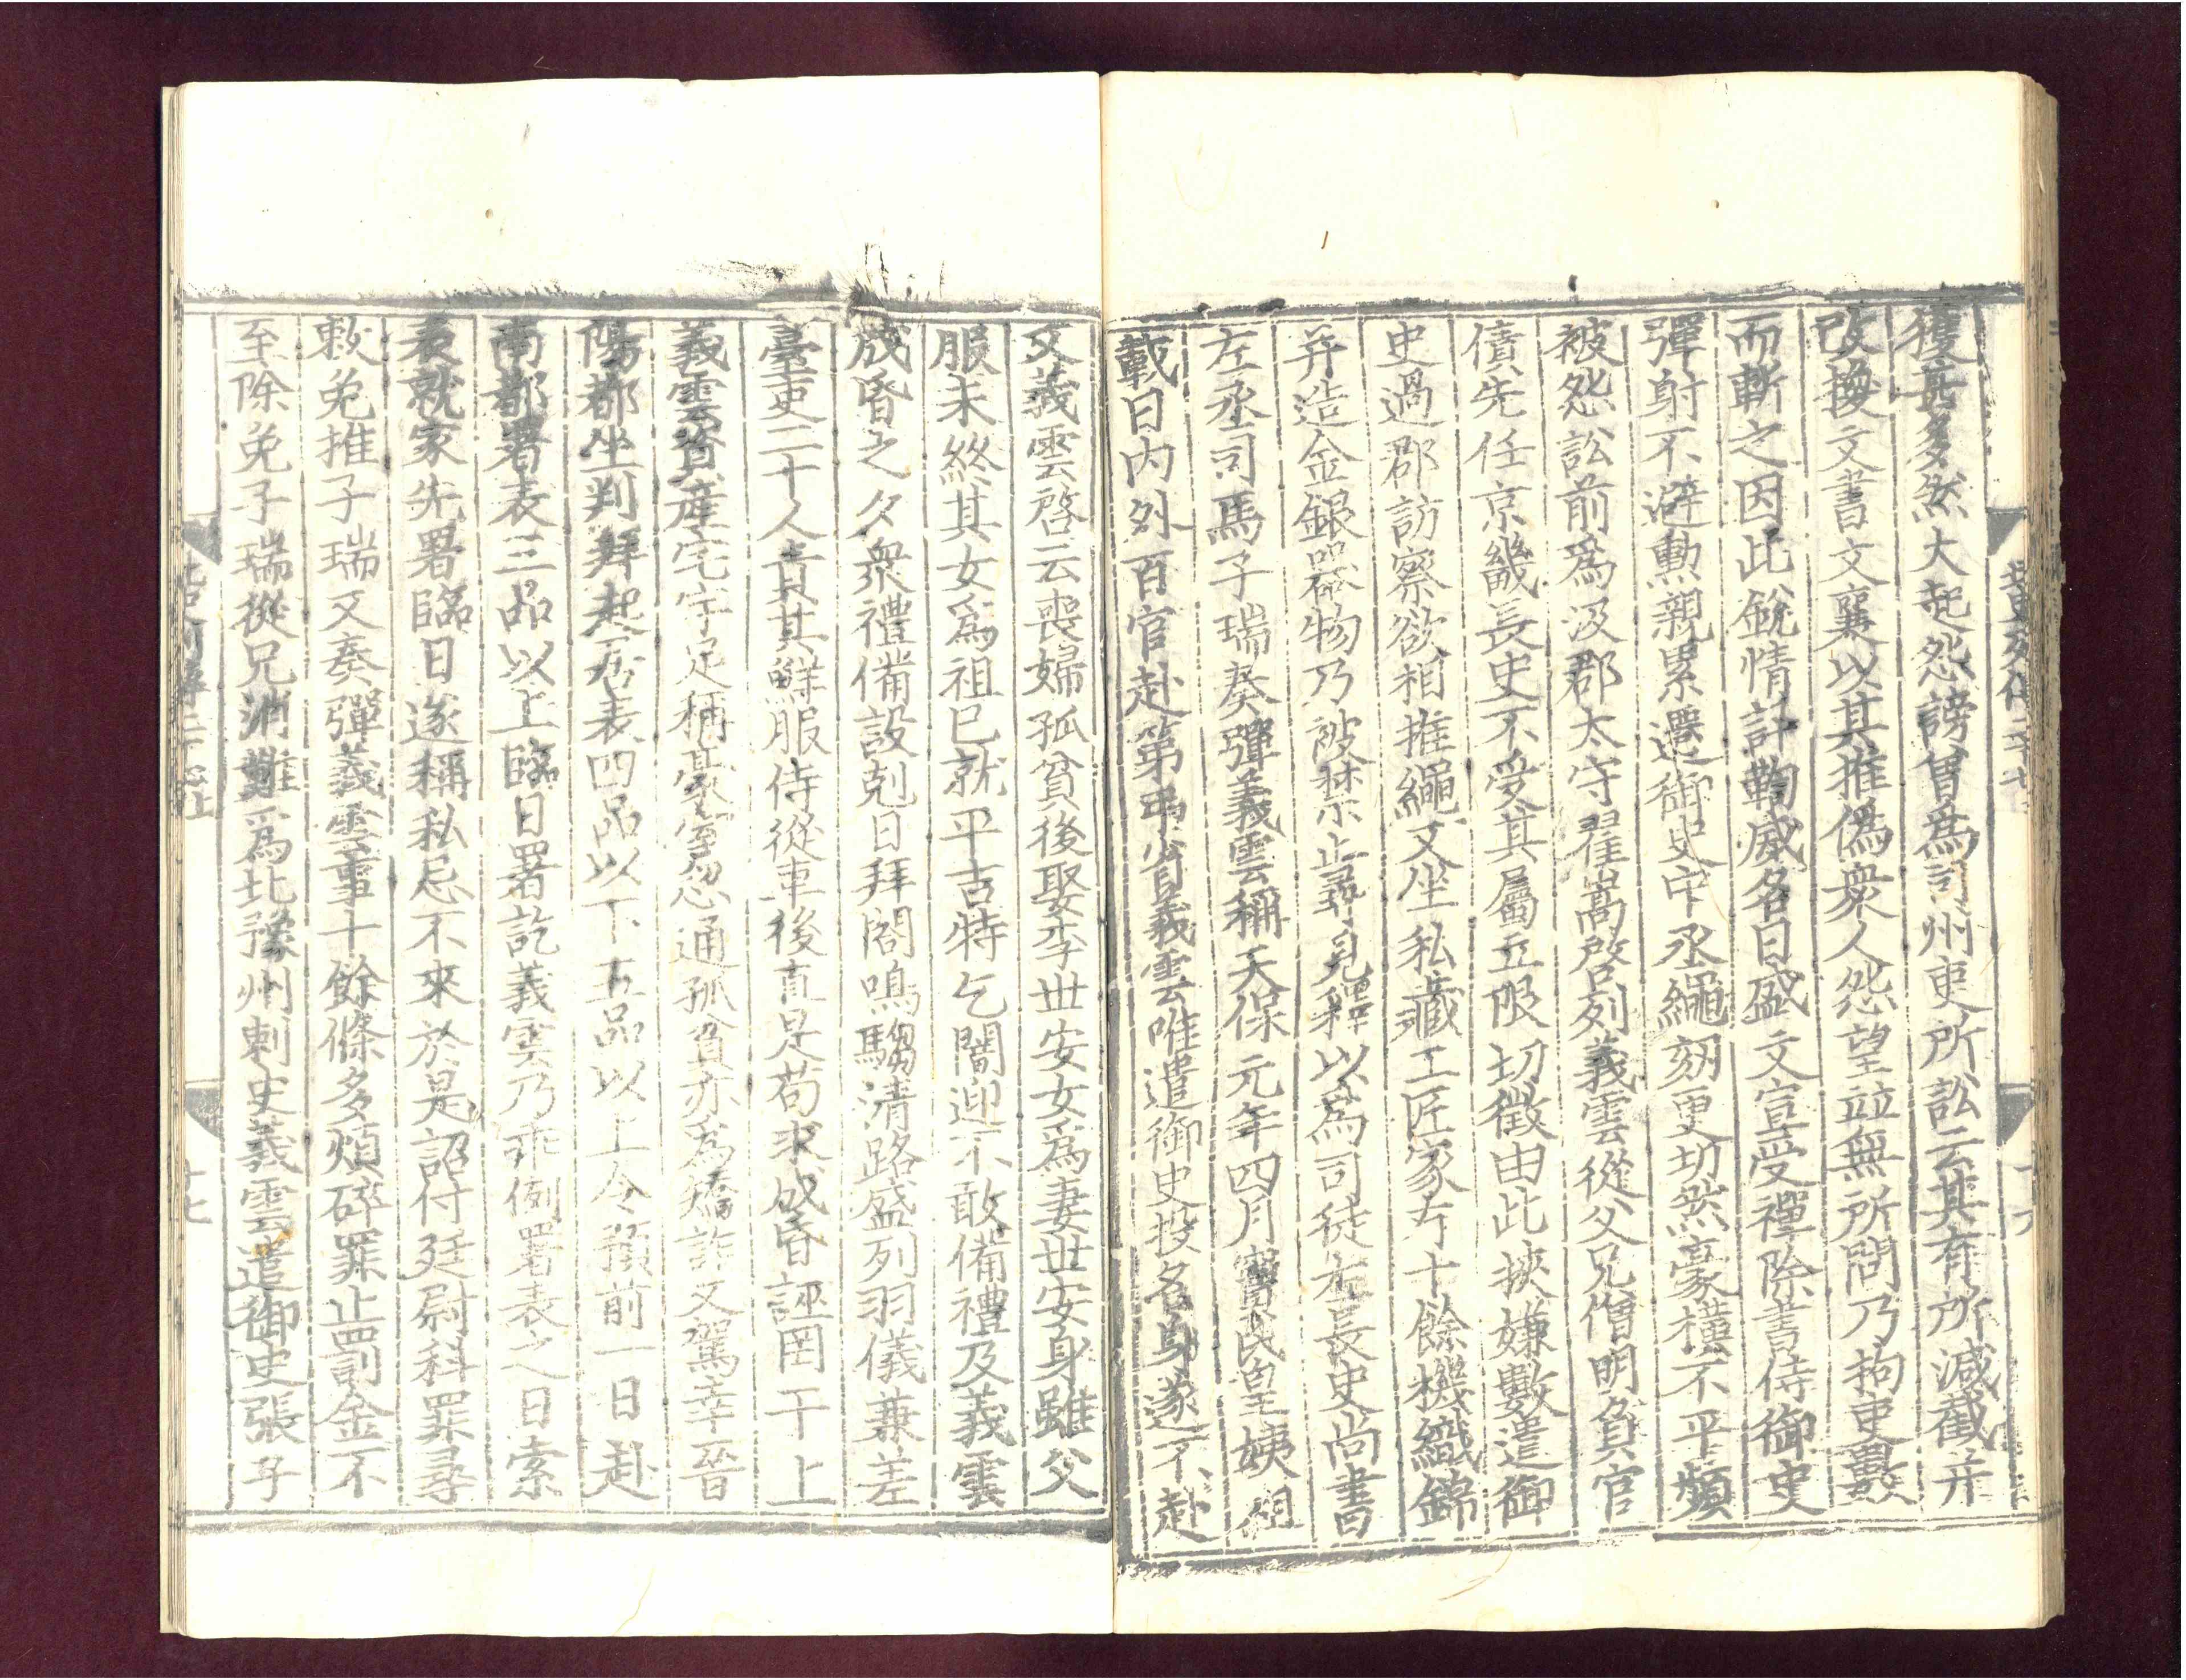 獲甚多然大起怨謗曾爲司州吏所訟云其有所減截并
改換文書文襄以其推僞衆人怨望並無所問乃拘吏數
而斬之因此銳情訐鞫威名日盛文宣受禪除書侍御史
彈射不避勳親累遷御史中丞繩劾更切然豪橫不平頻
被怨訟前爲汲郡太守翟嵩啓列義雲從父兄僧明負官
債先任京畿長史不受其屬立限切徵由此挾嫌數遣御
史過郡訪察欲相推繩又坐私藏工匠家有十餘機織錦
并造金銀器物乃被禁止尋見釋以爲司徒左長史尚書
左丞司馬子瑞奏彈義雲稱天保元年四月竇氏皇姨祖
載日內外百官赴第弔省義雲唯遣御史投名身遂不赴
又義雲啓云喪婦孤貧後娶李世安女爲妻世安身雖父
服未終其女爲祖已就平吉特乞闇迎不敢備禮及義雲
成昏之夕衆禮備設剋日拜閤鳴騶清路盛列羽儀兼差
臺吏二十人責其鮮服侍從車後直是苟求成昏誣罔干上
義雲資產宅宇足稱豪室忽通孤貧亦爲矯詐又駕幸晉
陽都坐判拜起居表四品以下五品以上令預前一日赴
南都署表三品以上臨日署訖義雲乃乖例署表之日索
表就家先署臨日遂稱私忌不來於是詔付廷尉科罪尋
敕免推子瑞又奏彈義雲事十餘條多煩碎罪止罰金不
至除免子瑞從兄消難爲北豫州刺史義雲遣御史張子